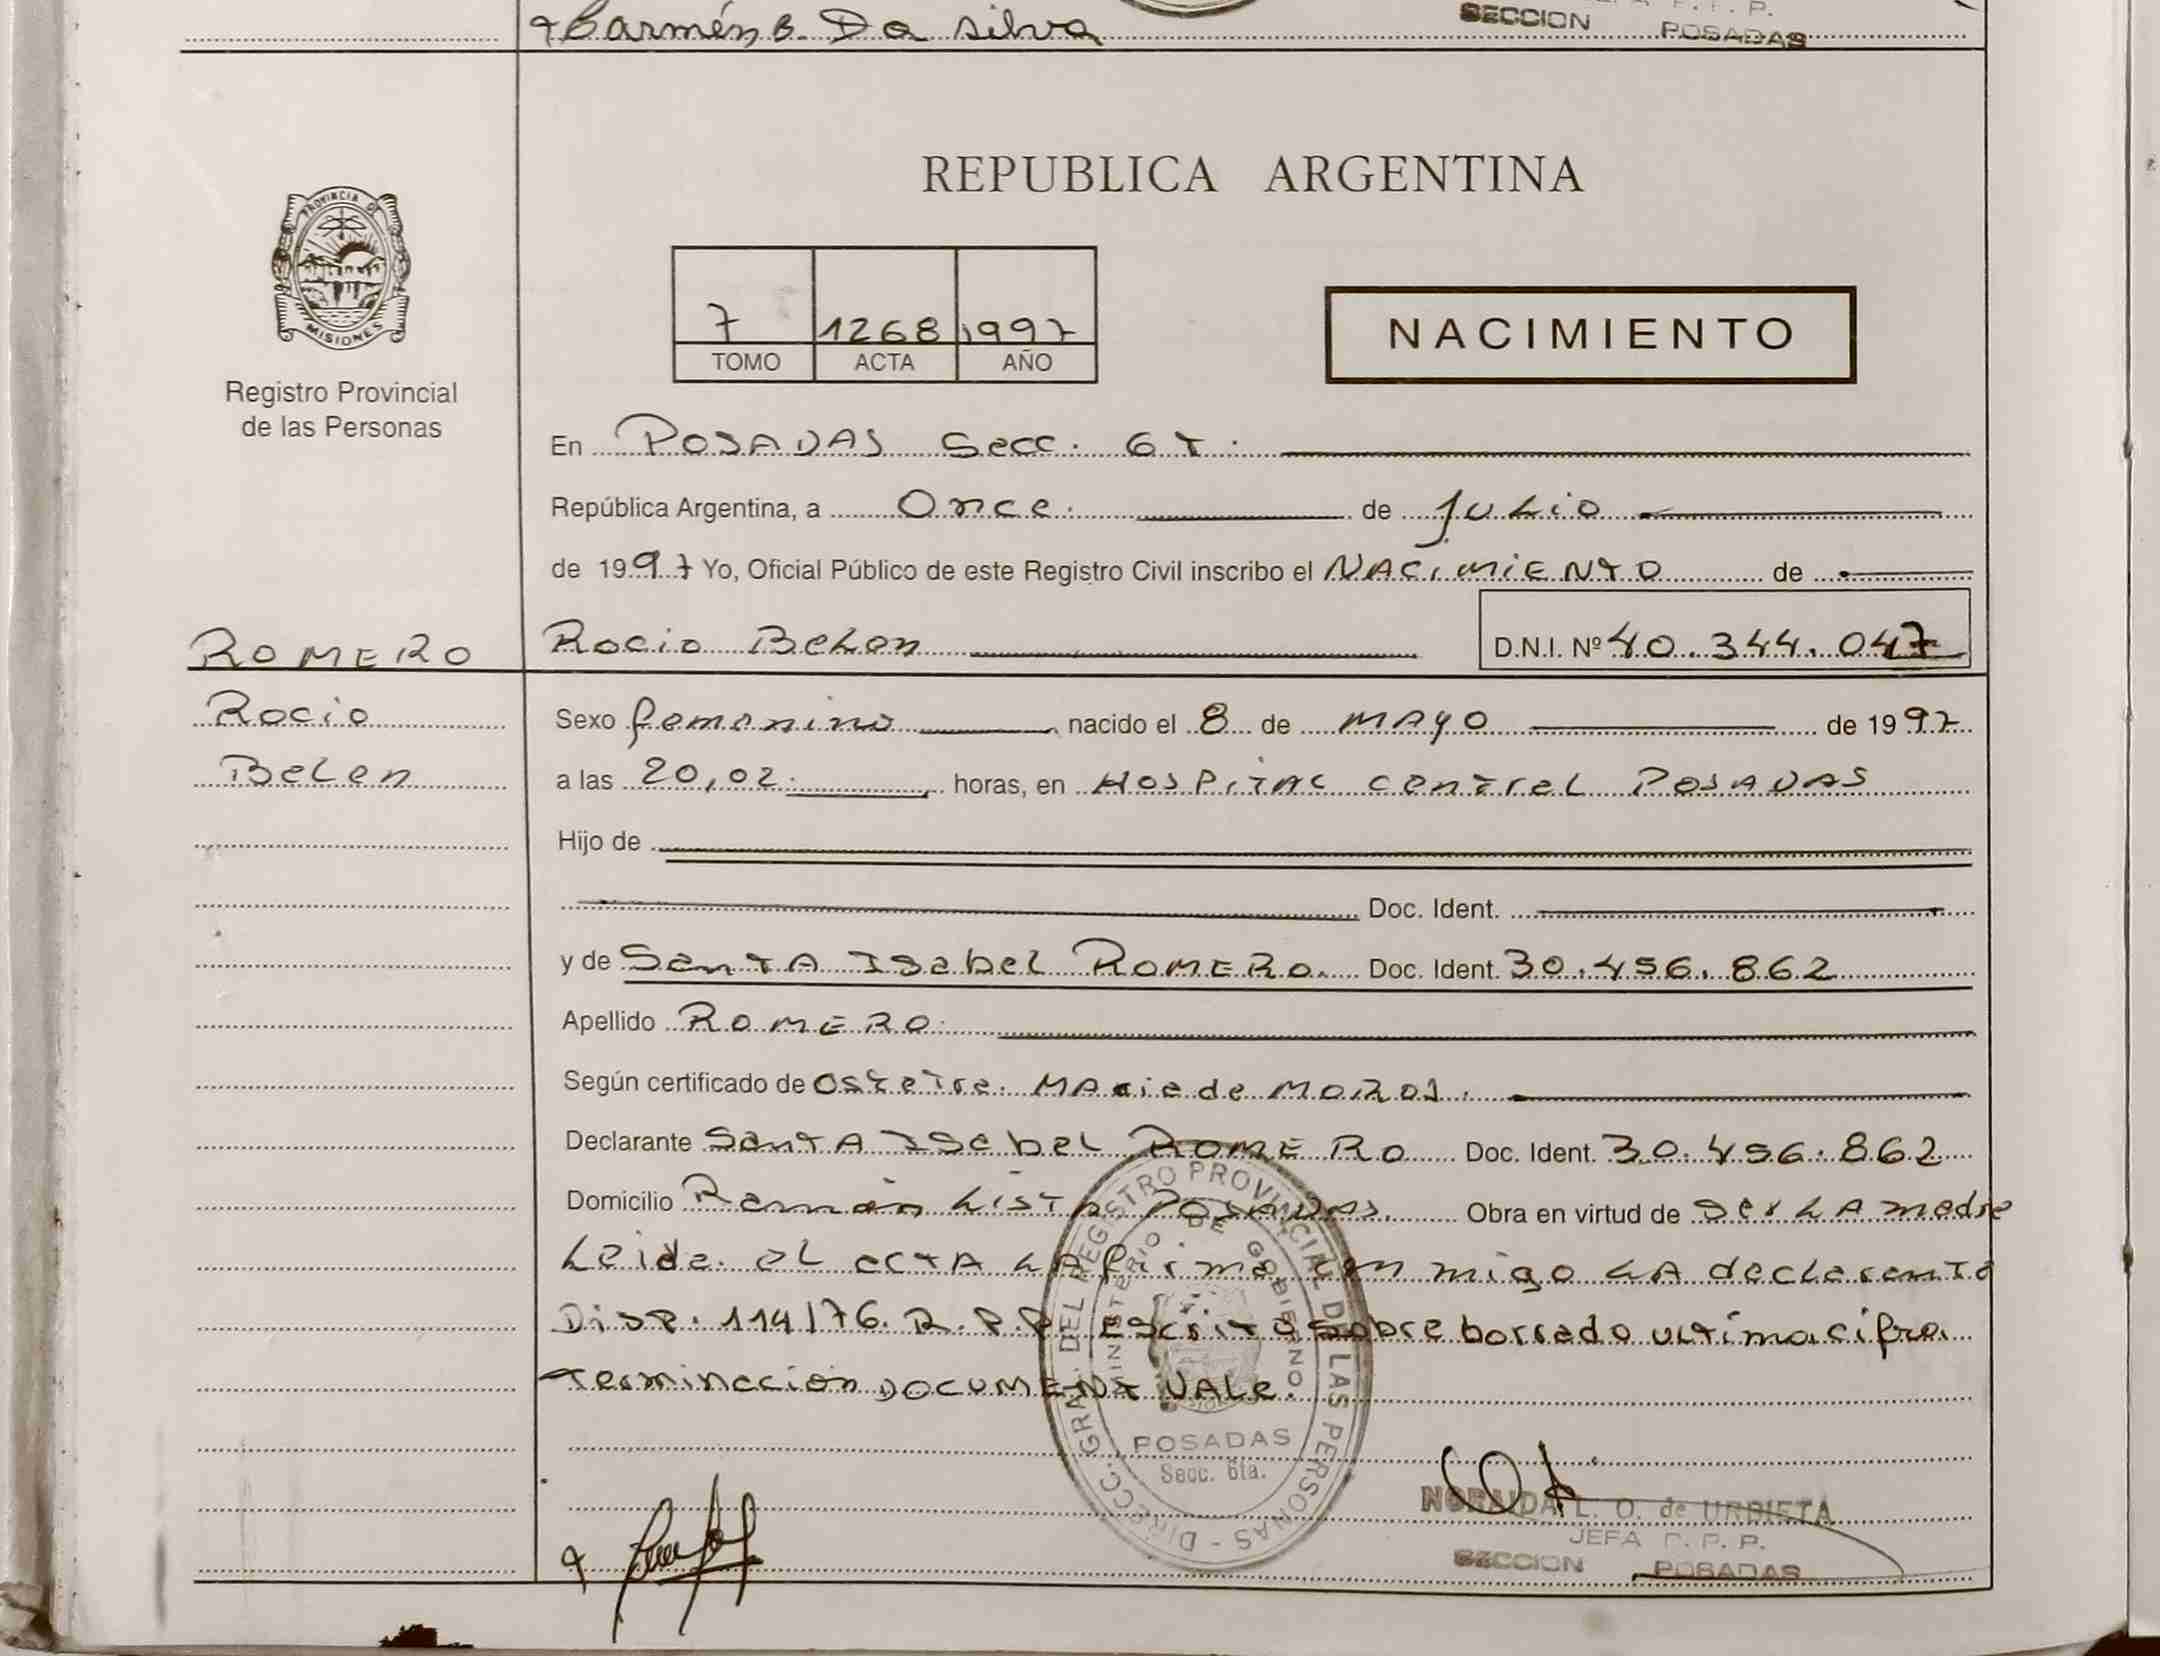 Carmén B. Da Silva
SECCION POSADAS
PROVINCIA DE
MISIONES
Registro Provincial
de las Personas
REPUBLICA ARGENTINA
7 1268 1997
TOMO ACTA AÑO
NACIMIENTO
En POSADAS Secc. 6T.
República Argentina, a Once. de Julio
de 1997 Yo, Oficial Público de este Registro Civil inscribo el NACIMIENTO de
ROMERO Rocio Belen D.N.I. Nº 40.344.047
Rocio Sexo femenino nacido el 8 de MAYO de 1997
Belen a las 20,02. horas, en HOSPITAL central POSADAS
Hijo de
Doc. Ident.
y de SANTA ISabel ROMERO. Doc. Ident. 30.456.862
Apellido ROMERO.
Según certificado de Ostetra. MARia de
Declarante SANTA ISabel ROMERO Doc. Ident. 30.456.862
Domicilio Ramón LISTA POSADAS. Obra en virtud de Ser LA madre
Leida el acta LA firma con migo LA declarante
Disp. 114/76. R.P.P. Escrito sobre borrado ultima cifra
terminacion DOCUMENT VALE.
DIRECC. GRAL. DEL REGISTRO PROVINCIAL DE LAS PERSONAS
MINISTERIO DE GOBIERNO
POSADAS
Secc. 6ta.
NORAIDA L. O. de URBIETA
JEFA R. P. P.
SECCION POSADAS